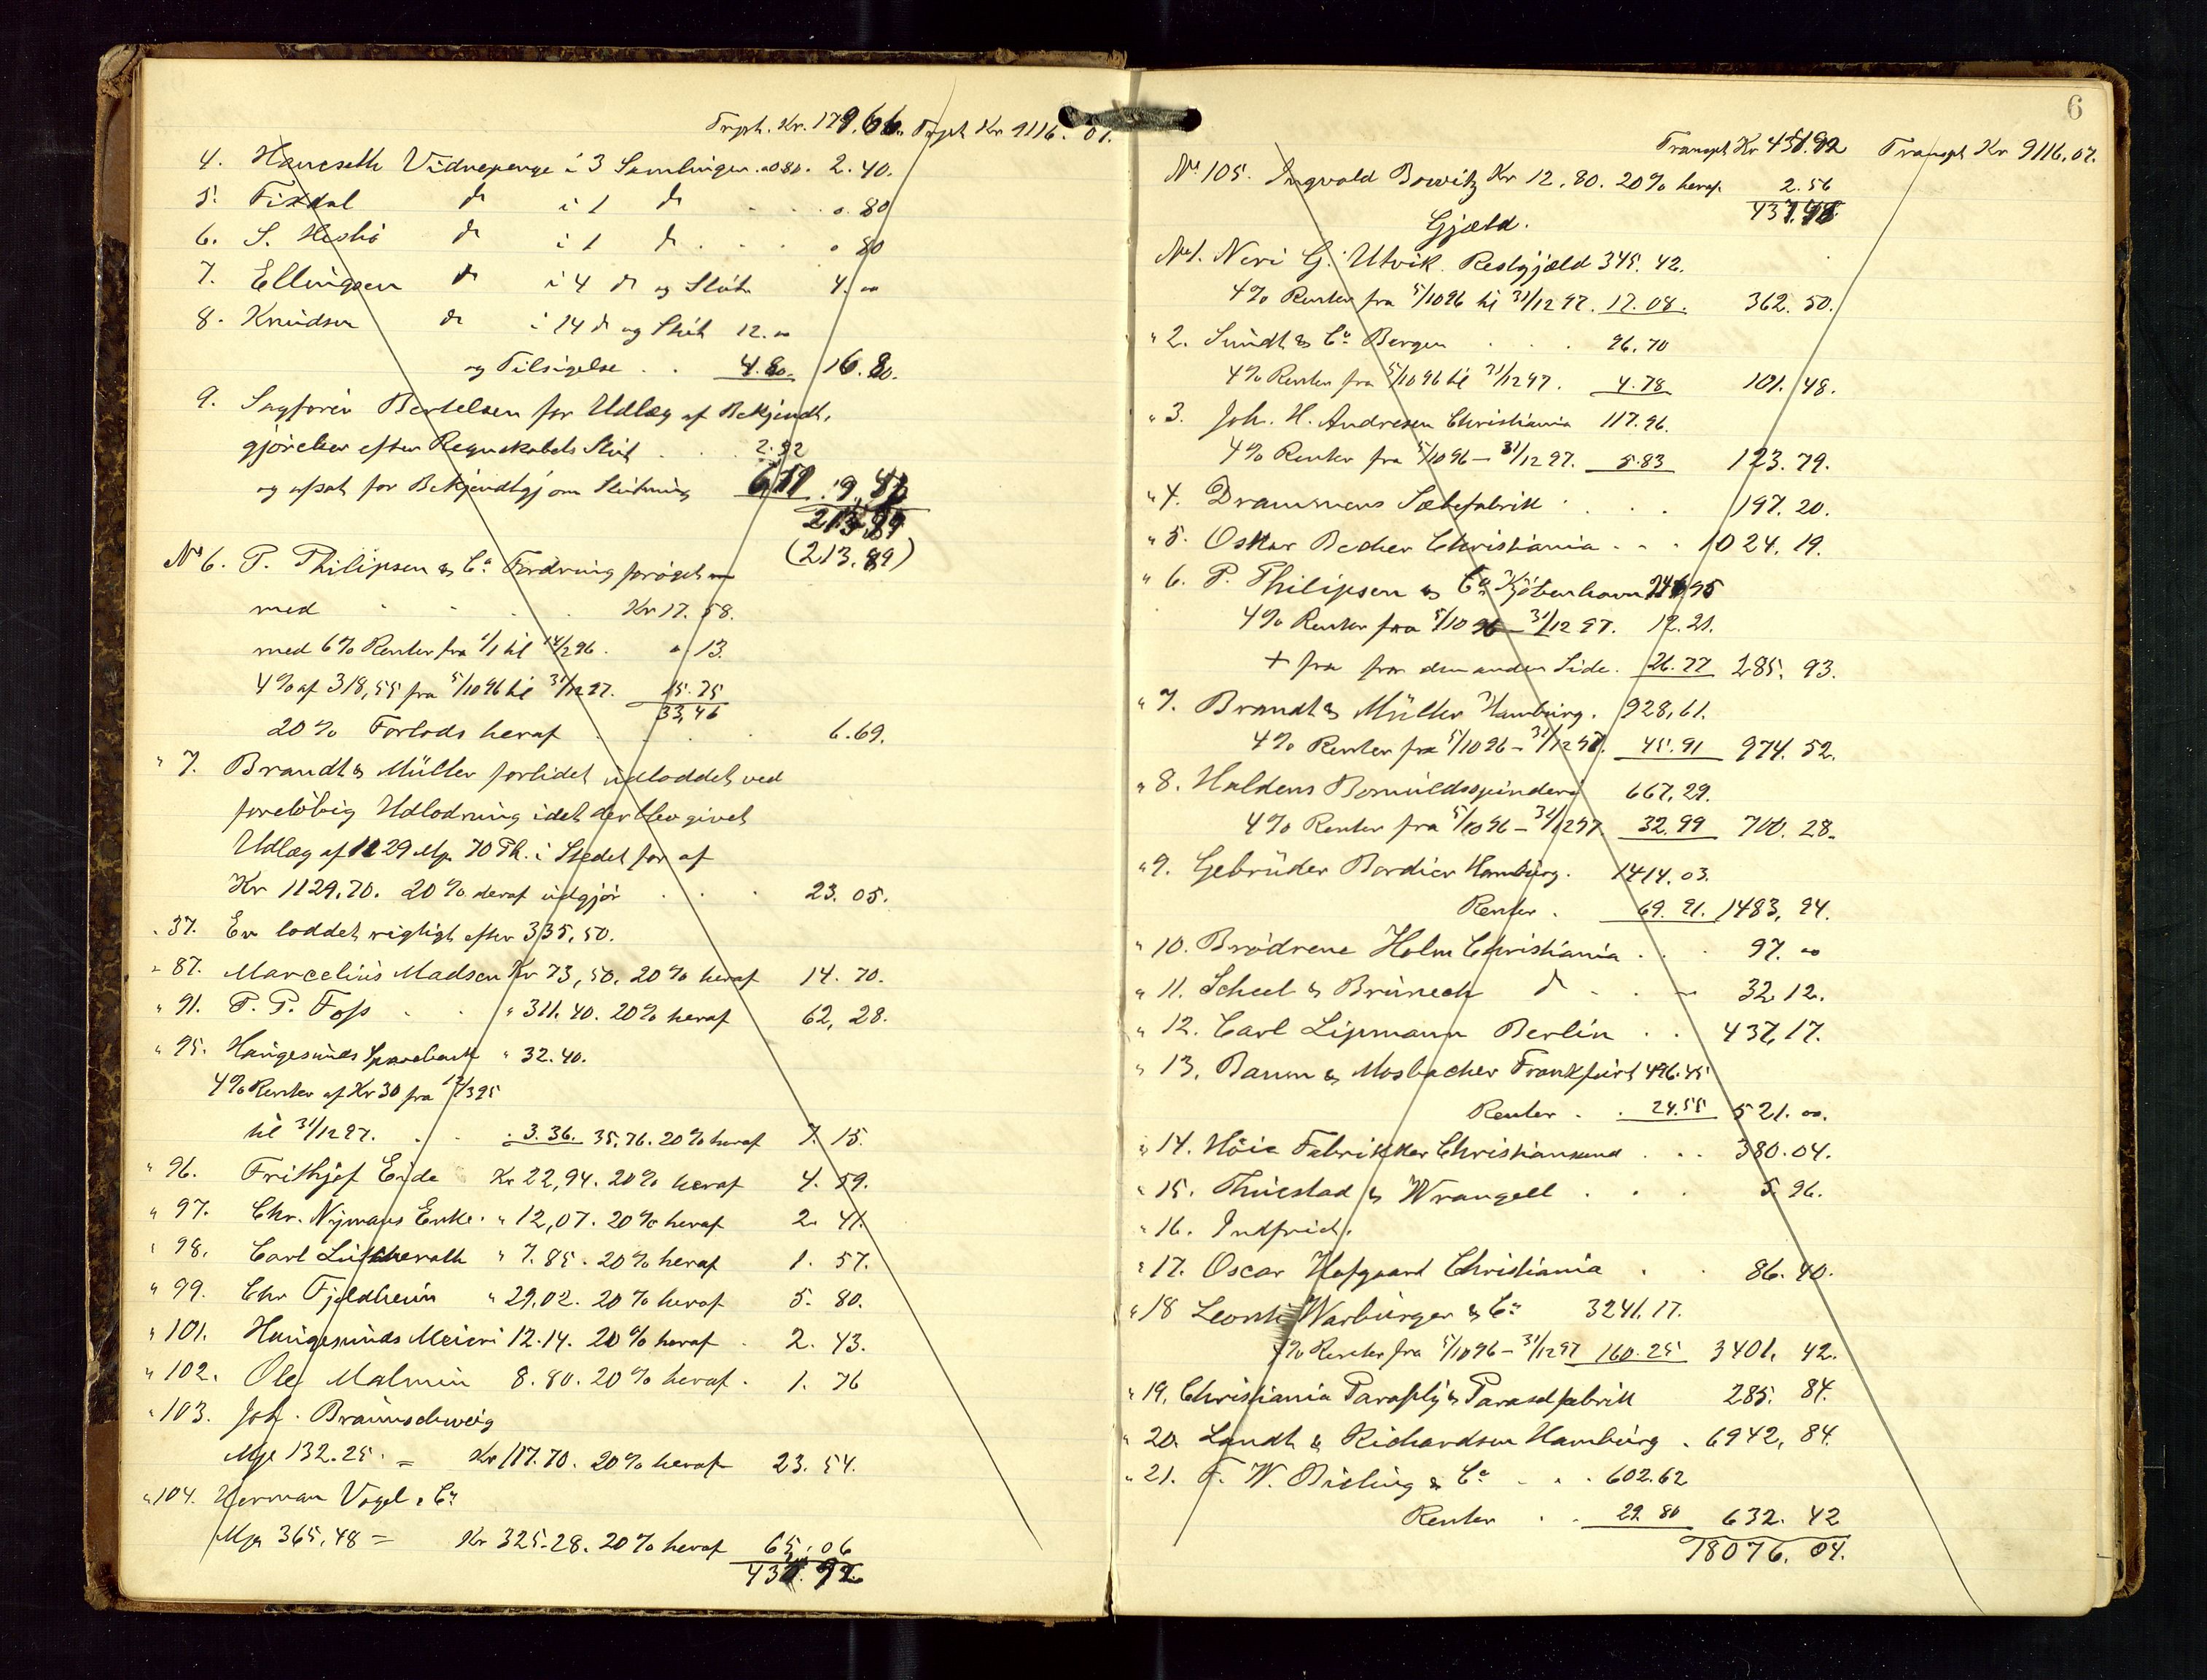 Trpt. Kr. 179.66. Trpt Kr 9116. 07.
4. Haucseth Vidnepenge i 3 Samlinger a 080. 2.40.
5. Fixdal do i 1 do . . 0. 80
6. S. do i 1 do . . . 0 80
7. Ellingsen do i 4 do og Slut 4. 00
8. Knudsen do i 14 do og Slut 12. 00
og Tilsigelse . . 4.80. 16.80.
9. Sagfører Bertelsen for Udlæg af Bekjendt,
gjørelser efter Regnskabets Slut . . . 2.92
og afsat for Bekjendtgj om Slutning 9.
213,89
(213.89)
No 6. P. Philipsen & Co Fordring forøget
med . . . . Kr 17.58.
med 6% Renter fra 1/1 til 14/2 96. " 13.
4% af 318,55 fra 5/10 96 til 31/12 97. 15.75
33,46
20% Forlods heraf . . . . 6.69.
" 7. Brandt & Müller forlidet udloddet ved
foreløbig Udlodning idet der blev givet
Udlæg af 1129 Mp. 70 Pk. i Stedet for af
Kr 1129.70. 20% deraf udgjør . . . 23.05.
" 37. Er loddet rigtigt efter 335,50.
" 87. Marcelius Madsen Kr 73,50. 20% heraf 14.70.
" 91. P. P. Foss . . " 311.40. 20% heraf 62,28.
" 95. Haugesunds Sparebank " 32.40.
4% Renter af Kr 30 fra 12/3 95
til 31/12 97. . . . 3.36. 35.76. 20% heraf 7.15.
" 96. Frithjof Eide Kr 22,94. 20% heraf 4.59.
" 97. Chr. Nymans Enke. " 12,07. 20% heraf 2.41.
" 98. Carl " 7.85. 20% heraf 1.57.
" 99. Chr Fjeldheim " 29.02. 20% heraf 5.80.
" 101. Haugesunds Meieri 12.14. 20% heraf . 2.43.
" 102. Ole Malmin 8.80. 20% heraf . 1.76
" 103. Joh. Braunschweig
Mp 132.25. = Kr 117.70. 20% heraf 23.54.
" 104. Herman Vogel & Co
Mp 365,48 = Kr 325.28. 20% heraf 65.06
6
Transpt Kr Transpt Kr 9116.07.
No 105. Ingvald Bowitz Kr 12.80. 20% heraf 2.56
Gjæld.
No 1. Neri G. Utvik. Restgjæld 345.42.
4% Renter fra 5/10 96 til 31/12 97. 17.08. 362.50.
" 2. Sundt & Co Bergen . . . 96.70
4% Renter fra 5/10 96 til 31/12 97. 4.78 101.48.
" 3. Joh. H. Andresen Christiania 117.96.
4% Renter fra 5/10 96 – 31/12 97. 5.83 123.79.
" 4. Drammens Sæbefabrik . . . 197.20.
" 5. Oskar Becher Christiania . . . 1024.19.
" 6. P. Philipsen & Co Kjøbenhavn 246,95
4% Renter fra 5/10 96 – 31/12 97. 12.21.
+ fra for den anden Side. 26.77 285.93.
" 7. Brandt & Müller Hamburg. 928,61.
4% Renter fra 5/10 96 – 31/12 97. 45.91 974.52.
" 8. Haldens Bomuldsspinderi 667.29.
4% Renter fra 5/10 96 – 31/12 97 32.99 700.28.
" 9. Gebrüder Bardier Hamburg. 1414.03.
Renter . 69.91. 1483,94.
" 10. Brødrene Holm Christiania . . . 97. 00
" 11. Scheel & Brünech do . . – 32.12.
" 12. Carl Lipmann Berlin . . 437,17.
" 13. Baum & Mosbacher Frankfurt 496.45
Renter . . 24.55 521.00.
" 14. Høie Fabrikker Christiansand . . . 380.04.
" 15. Thuestad & Wrangell . . . 5.96.
" 16. Indfriet.
" 17. Oscar Hofgaard Christiania . . 86.40.
" 18 Warburger & Co 3241.17.
4% Renter fra 5/10 96 – 31/12 97 160.25 3401.42.
" 19. Christiania Paraply & Parasolfabrik 285.84.
" 20. Landt & Richardsen Hamburg . 6942,84.
" 21. F. W. Bieling & Co . . . 602.62
Renter . . 29.80 632.42
18076.04.